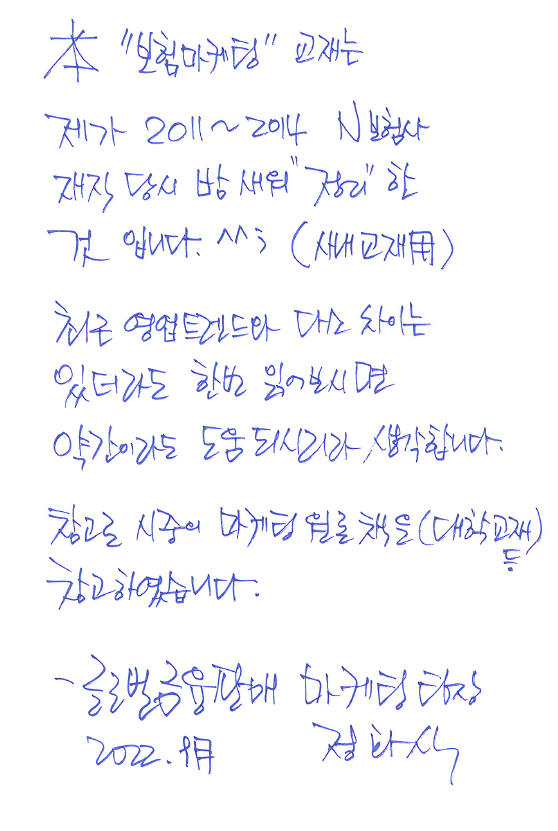 本 "보험마케팅" 교재는
제가 2011~2014 N보험사
재직 당시 밤새워 "정리" 한
것 입니다. ^^; (사내교재用)
최근 영업트렌드와 다소 차이는
있더라도 한번 읽어보시면
약간이라도 도움되시리라 생각합니다.
참고로 시중의 마케팅 원론 책을 (대학교재)
등
참고하였습니다.
- 글로벌금융판매 마케팅팀장
2022. 9月